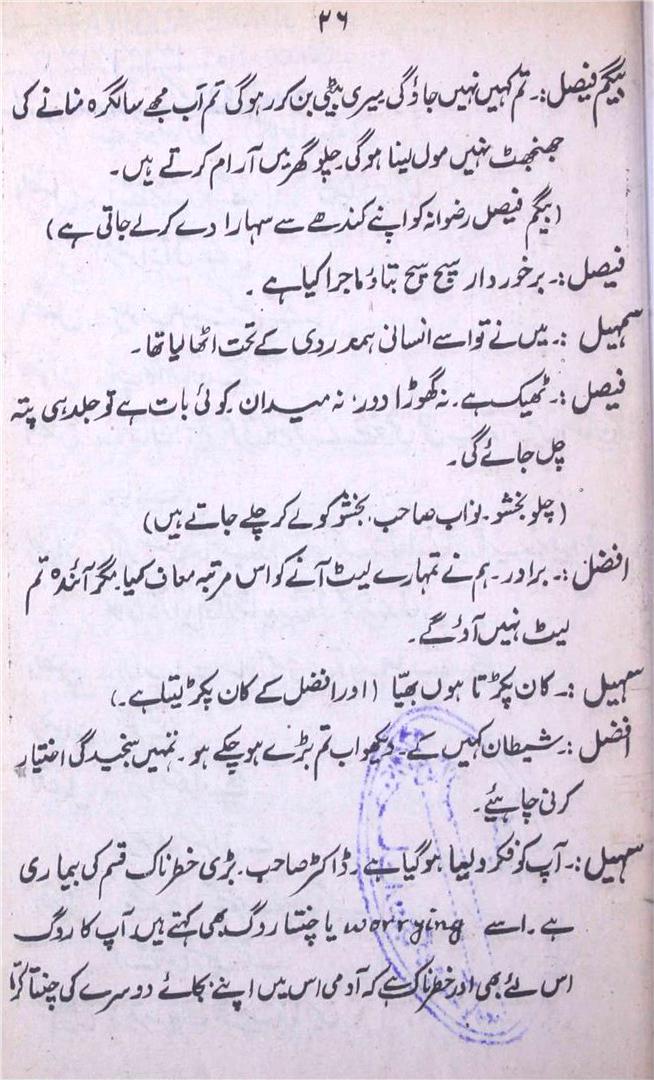 ۲۶
بیگم فیصل:۔ تم کہیں نہیں جاؤگی میری بیٹی بن کر رہوگی تم اب مجھے سالگرہ منانے کی
جھنجھٹ نہیں مول لینا ہوگی چلو گھر میں آرام کرتے ہیں۔
(بیگم فیصل رضوانہ کو اپنے کندھے سے سہارا دے کر لے جاتی ہے)
فیصل:۔ برخوردار سچ سچ بتاؤ ماجرا کیا ہے۔
سہیل:۔ میں نے تو اسے انسانی ہمدردی کے تحت اٹھا لیا تھا۔
فیصل:۔ ٹھیک ہے۔ نہ گھوڑا دور، نہ میدان۔ کوئی بات ہے تو جلد ہی پتہ
چل جائے گی۔
(چلو بخشو۔ نواب صاحب، بخشو کو لے کر چلے جاتے ہیں)
افضل:۔ برادر۔ ہم نے تمہارے لیٹ آنے کو اس مرتبہ معاف کیا۔ مگر آئندہ تم
لیٹ نہیں آؤ گے۔
سہیل:۔ کان پکڑتا ہوں بھیّا (اور افضل کے کان پکڑ لیتا ہے۔)
افضل:۔ شیطان کہیں کے۔ دیکھو اب تم بڑے ہو چکے ہو۔ تمہیں سنجیدگی اختیار
کرنی چاہیئے۔
سہیل:۔ آپ کو فکر و لیا ہوگیا ہے۔ ڈاکٹر صاحب۔ بڑی خطرناک قسم کی بیماری
ہے۔ اسے worrying یا چنتا روگ بھی کہتے ہیں۔ آپ کا روگ
اس لئے بھی اور خطرناک ہے کہ آدمی اس میں اپنے بجائے دوسرے کی چنتا کرتا